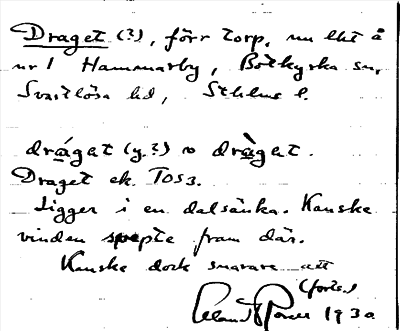 Draget (?), förr torp, nu lht å
nr 1 Hammarby, Botkyrka sn,
Svartlösa hd, Sthlms l.
drágat (y.?) o dràgat.
Draget ek. TOS3.
Ligger i en dalsänka. Kanske
vinden svepte fram där.
Kanske dock snarare att
(forts.)
1930